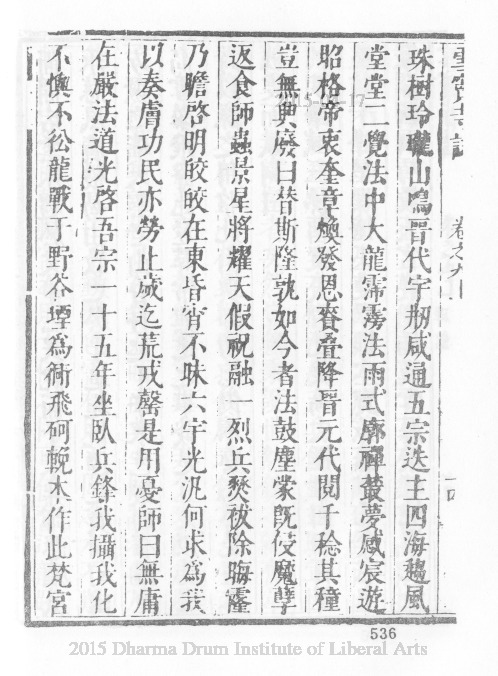 雪竇寺誌 卷之九 一四
珠樹玲瓏山鳴晉代宇剏咸通五宗迭主四海趨風
堂堂二覺法中大龍霈霶法雨式廓禪叢夢感宸遊
昭格帝衷奎章煥發恩賚疊降晉元代閱千稔其種
豈無興廢曰替斯隆孰如今者法鼓塵蒙旣伇魔孽
返食師蟲景星將耀天假祝融一烈兵燹祓除晦霾
乃瞻啓明皎皎在東昏宵不昧六宇光汎何求爲我
以奏膚功民亦勞止歲迄荒戎罄是用憂師曰無庸
在嚴法道光啓吾宗一十五年坐臥兵鋒我攝我化
不懊不忪龍戰于野谷堙爲衕飛砢輓木作此梵宮
536
2015 Dharma Drum Institute of Liberal Arts